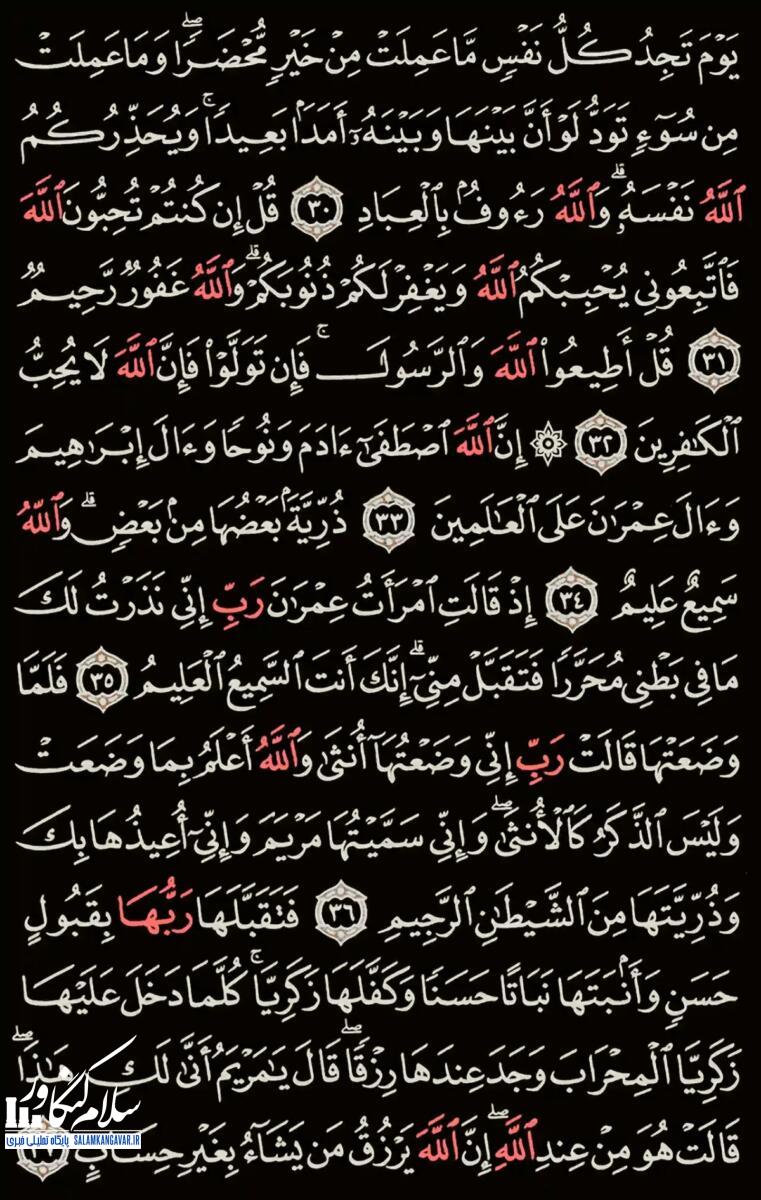 يَوْمَ تَجِدُ كُلُّ نَفْسٍ مَّا عَمِلَتْ مِنْ خَيْرٍ مُّحْضَرًا وَمَا عَمِلَتْ
مِن سُوٓءٍ تَوَدُّ لَوْ أَنَّ بَيْنَهَا وَبَيْنَهُۥٓ أَمَدَۢا بَعِيدًا ۗ وَيُحَذِّرُكُمُ
ٱللَّهُ نَفْسَهُۥ ۗ وَٱللَّهُ رَءُوفُۢ بِٱلْعِبَادِ ٣٠ قُلْ إِن كُنتُمْ تُحِبُّونَ ٱللَّهَ
فَٱتَّبِعُونِى يُحْبِبْكُمُ ٱللَّهُ وَيَغْفِرْ لَكُمْ ذُنُوبَكُمْ ۗ وَٱللَّهُ غَفُورٌ رَّحِيمٌ
٣١ قُلْ أَطِيعُوا۟ ٱللَّهَ وَٱلرَّسُولَ ۖ فَإِن تَوَلَّوْا۟ فَإِنَّ ٱللَّهَ لَا يُحِبُّ
ٱلْكَٰفِرِينَ ٣٢ ۞ إِنَّ ٱللَّهَ ٱصْطَفَىٰٓ ءَادَمَ وَنُوحًا وَءَالَ إِبْرَٰهِيمَ
وَءَالَ عِمْرَٰنَ عَلَى ٱلْعَٰلَمِينَ ٣٣ ذُرِّيَّةَۢ بَعْضُهَا مِنۢ بَعْضٍ ۗ وَٱللَّهُ
سَمِيعٌ عَلِيمٌ ٣٤ إِذْ قَالَتِ ٱمْرَأَتُ عِمْرَٰنَ رَبِّ إِنِّى نَذَرْتُ لَكَ
مَا فِى بَطْنِى مُحَرَّرًا فَتَقَبَّلْ مِنِّىٓ ۖ إِنَّكَ أَنتَ ٱلسَّمِيعُ ٱلْعَلِيمُ ٣٥ فَلَمَّا
وَضَعَتْهَا قَالَتْ رَبِّ إِنِّى وَضَعْتُهَآ أُنثَىٰ وَٱللَّهُ أَعْلَمُ بِمَا وَضَعَتْ
وَلَيْسَ ٱلذَّكَرُ كَٱلْأُنثَىٰ ۖ وَإِنِّى سَمَّيْتُهَا مَرْيَمَ وَإِنِّىٓ أُعِيذُهَا بِكَ
وَذُرِّيَّتَهَا مِنَ ٱلشَّيْطَٰنِ ٱلرَّجِيمِ ٣٦ فَتَقَبَّلَهَا رَبُّهَا بِقَبُولٍ
حَسَنٍ وَأَنۢبَتَهَا نَبَاتًا حَسَنًا وَكَفَّلَهَا زَكَرِيَّا ۖ كُلَّمَا دَخَلَ عَلَيْهَا
زَكَرِيَّا ٱلْمِحْرَابَ وَجَدَ عِندَهَا رِزْقًا ۖ قَالَ يَٰمَرْيَمُ أَنَّىٰ لَكِ هَٰذَا ۖ
قَالَتْ هُوَ مِنْ عِندِ ٱللَّهِ ۖ إِنَّ ٱللَّهَ يَرْزُقُ مَن يَشَآءُ بِغَيْرِ حِسَابٍ ٣٧
سلام کنگاور
پایگاه تحلیلی خبری SALAMKANGAVAR.IR